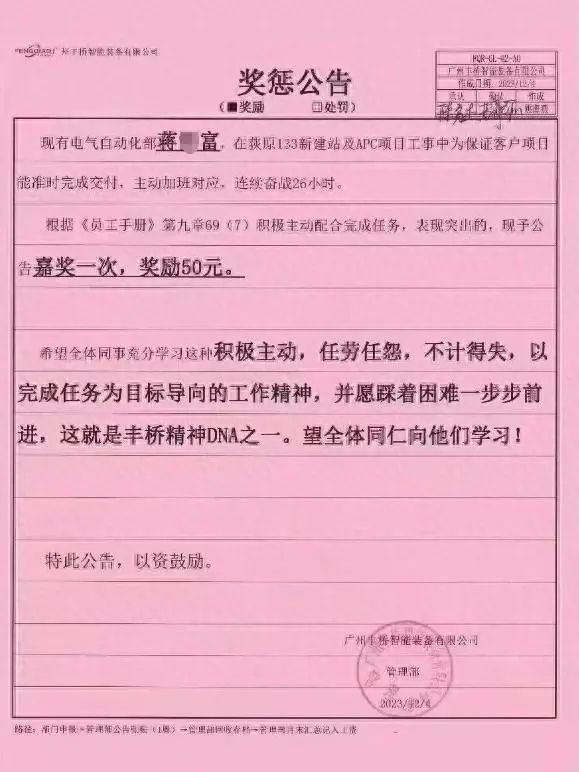 FENGQIAO 广州丰桥智能装备有限公司
FQR-GL-02-A0
广州丰桥智能装备有限公司
作成日期 2023/12/4
承认 确认 作成
奖惩公告
(■奖励 □处罚)
现有电气自动化部蒋 富，在荻原133新建站及APC项目工事中为保证客户项目
能准时完成交付，主动加班对应，连续奋战26小时。
根据《员工手册》第九章69（7）积极主动配合完成任务，表现突出的，现予公
告嘉奖一次，奖励50元。
希望全体同事充分学习这种积极主动，任劳任怨，不计得失，以
完成任务为目标导向的工作精神，并愿踩着困难一步步前
进，这就是丰桥精神DNA之一。望全体同仁向他们学习！
特此公告，以资鼓励。
广州丰桥智能装备有限公司
管理部
2023/12/4
路径：部门申报→管理部公告张贴（1周）→管理部回收存档→管理部月末汇总记入工资